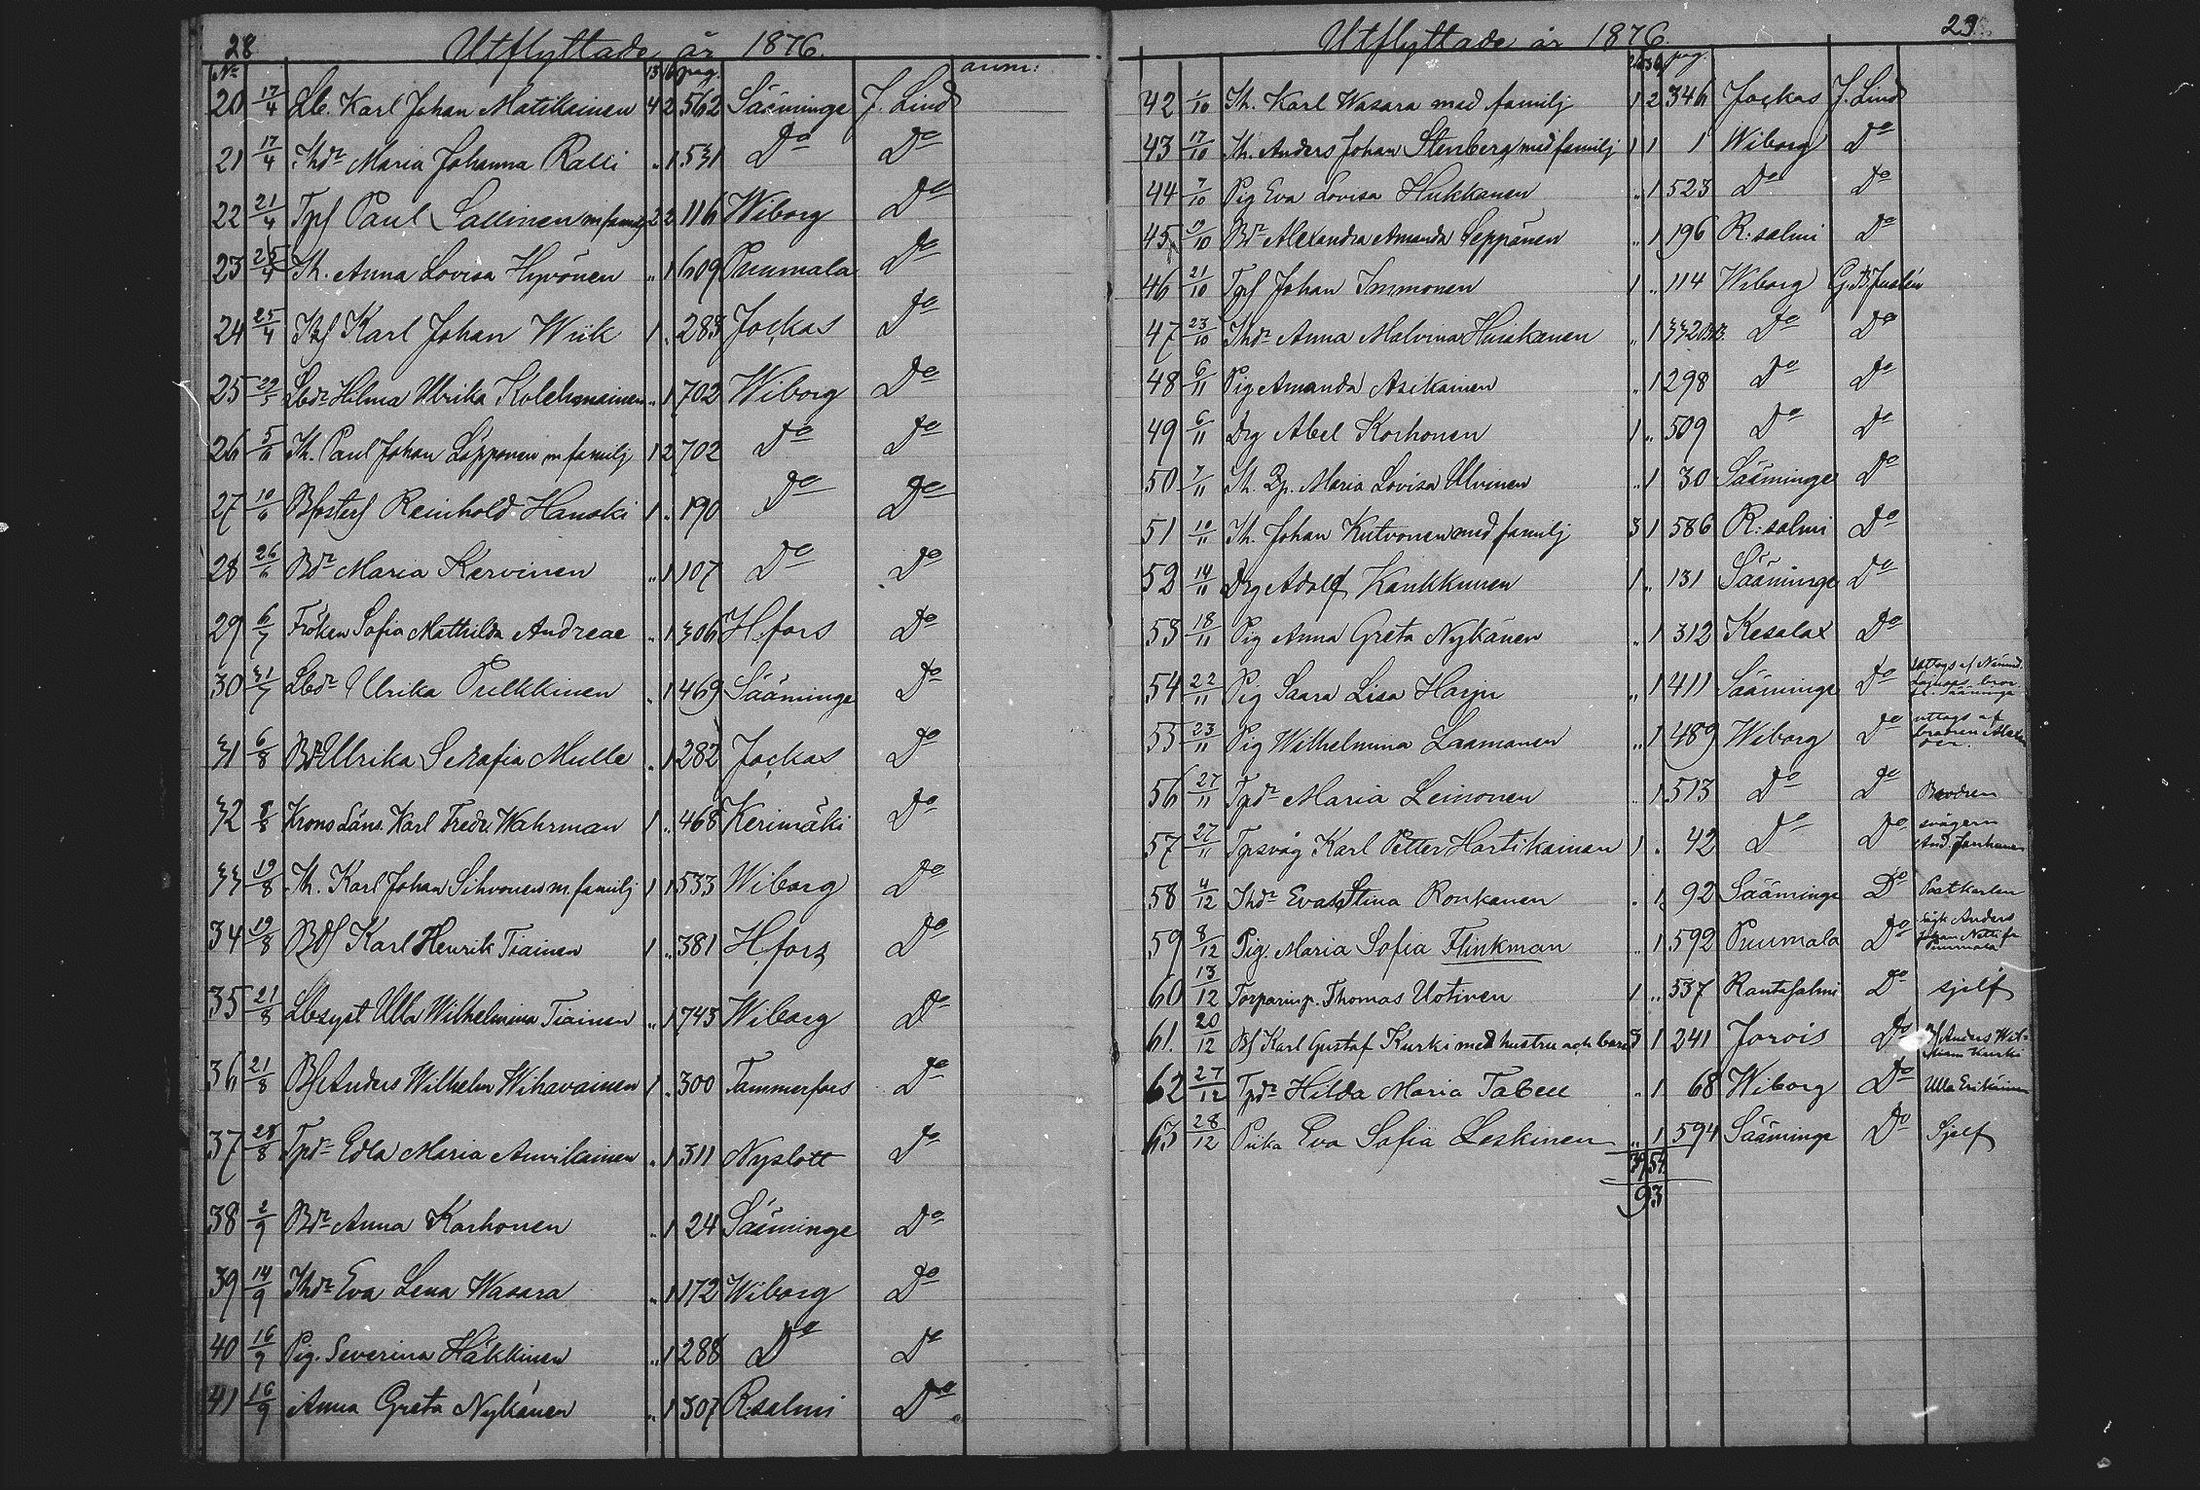 28
Utflyttade år 1876.
No 13 16 pag. anm:
20 17/4 Lb. Karl Johan Matikainen 4 2 562 Sääminge J. Lind
21 17/4 Thdr Maria Johanna Ralli „ 1 531 Do Do
22 21/4 Tpf Paul Sallinen m familj 2 2 116 Wiborg Do
23 25/4 Th. Anna Lovisa Hyvönen „ 1 609 Puumala Do
24 25/4 Karl Johan Wiik 1 „ 283 Jockas Do
25 Lbdr Hilma Ulrika Kolehmainen „ 1 702 Wiborg Do
26 5/6 Th. Paul Johan Läpponen m familj 1 2 702 Do Do
27 10/6 Reinhold Hanski 1 „ 190 Do Do
28 26/6 Bdr Maria Kervinen „ 1 107 Do Do
29 6/7 Fröken Sofia Mathilda Andreae „ 1 306 H:fors Do
30 31/7 Lbdr Ulrika Pulkkinen „ 1 469 Sääminge Do
31 6/8 Bdr Ulrika Serafia Mulle „ 1 282 Jockas Do
32 8/8 Krono Läns. Karl Fredr. Wahrman 1 „ 468 Kerimäki Do
33 19/8 Th. Karl Johan Sihvonen m. familj 1 1 533 Wiborg Do
34 19/8 Karl Henrik Tiainen 1 „ 381 H:fors Do
35 21/8 Lbsyst Ulla Wilhelmina Tiainen „ 1 743 Wiborg Do
36 21/8 Bf Anders Wilhelm Wihavainen 1 „ 300 Tammerfors Do
37 28/8 Tpdr Edla Maria Auvikainen „ 1 311 Nyslott Do
38 2/9 Bdr Anna Karhonen „ 1 24 Sääminge Do
39 14/9 Thdr Eva Lena Wasara „ 1 172 Wiborg Do
40 16/9 Pig. Severina Häkkinen „ 1 288 Do Do
41 16/9 Anna Greta Nykänen „ 1 307 R:salmi Do
29
Utflyttade år 1876
pag.
42 1/10 Th. Karl Wasara med familj 1 2 346 Jockas J. Lind
43 17/10 Th. Anders Johan Stenberg med familj 1 1 1 Wiborg Do
44 7/10 Pig Eva Lovisa Hukkanen „ 1 523 Do Do
45 9/10 Bdr Alexandra Amanda Seppänen „ 1 196 R:salmi Do
46 21/10 Tpf Johan Immonen 1 „ 114 Wiborg
47 23/10 Thdr Anna Malvina Huiskanen „ 1 332 Do Do
48 6/11 Pig Amanda Asikainen „ 1 298 Do Do
49 6/11 Drg Abel Korhonen 1 „ 509 Do Do
50 7/11 Th. Maria Lovisa Ulvinen „ 1 30 Sääminge Do
51 10/11 Th. Johan Kutvonen med familj 3 1 586 R:salmi Do
52 14/11 Drg Adolf Kaukkunen 1 „ 131 Sääminge Do
53 18/11 Pig Anna Greta Nykänen „ 1 312 Kesalax Do
54 22/11 Pig Saara Lisa Harju „ 1 411 Sääminge Do
55 23/11 Pig Wilhelmina Laamanen „ 1 489 Wiborg Do uttags af brodren
56 27/11 Tpdr Maria Leinonen „ 1 513 Do Do Brodren
57 27/11 Tpsvåg Karl Petter Hartikainen 1 „ 42 Do Do svågern And.
58 4/12 Thdr Eva Stina Ronkanen „ 1 92 Sääminge Do Postkarlen
59 8/12 Pig. Maria Sofia Flinkman „ 1 592 Puumala Do Anders Johan Puumala
60 13/12 Torparinp. Thomas Uotinen 1 „ 537 Rantasalmi Do sjelf
61. 20/12 Bf Karl Gustaf Kurki med hustru och barn 3 1 241 Jorois Do Bf Anders Wilhelm Kurki
62 27/12 Tpdr Hilda Maria Tabell „ 1 68 Wiborg Do Ulla
63 28/12 Piika Eva Sofia Leskinen „ 1 594 Sääminge Do Sjelf
39 54
93